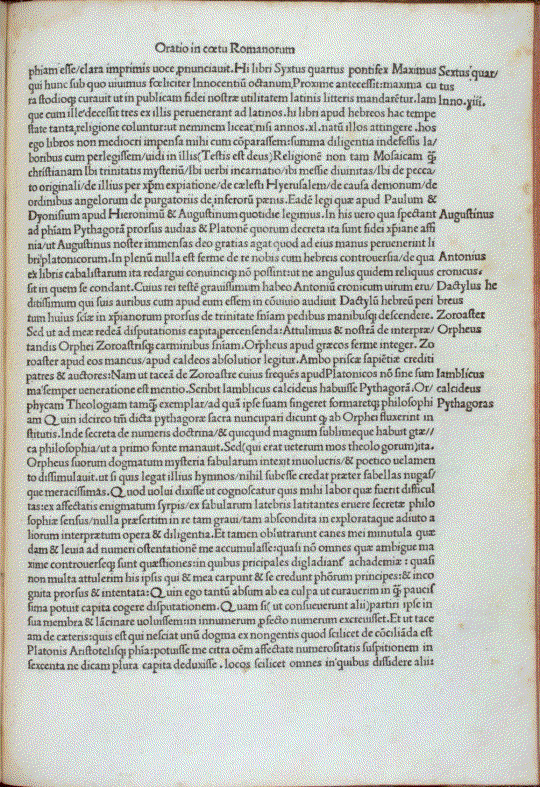 Oratio in cœtu Romanorum
phiam esse/clara imprimis uoce ꝓnunciauit. Hi libri Syxtus quartus pontifex Maximus Sextus quar/
qui hunc sub quo uiuimus fœliciter Innocentiũ octauum, Proxime antecessit: maxima cu tus
ra studioqꝫ curauit ut in publicam fidei nostræ utilitatem latinis litteris mandarẽtur. Iam Inno. viii.
que cum ille decessit tres ex illis peruenerant ad latinos. hi libri apud hebreos hac tempe
state tanta religione coluntur: ut neminem liceat nisi annos. xl. natũ illos attingere. hos
ego libros non mediocri impensa mihi cum cõparassem: summa diligentia indefessis la/
boribus cum perlegissem/uidi in illis (Testis est deus) Religionẽ non tam Mosaicam ꝙ̃
christianam Ibi trinitatis mysteriũ/Ibi uerbi incarnatio/ibi messie diuinitas/Ibi de pecca/
to originali/de illius per xp̃m expiatione/de cælesti Hyerusalem/de casu demonum/de
ordinibus angelorum de purgatoriis de inferorũ pœnis. Eadẽ legi quæ apud Paulum &
Dyonisium apud Hieronimũ & Augustinum quotidie legimus. In his uero qua spectant Augustinus
ad phiam Pythagorã prorsus audias & Platonẽ quorum decreta ita sunt fidei xp̃iane affi
nia/ut Augustinus noster immensas deo gratias agat quod ad eius manus peruenerint li
bri platonicorum. In plenũ nulla est ferme de re nobis cum hebreis controuersia/de qua Antonius
ex libris cabalistarum ita redargui conuinciqꝫ nõ possint/ut ne angulus quidem reliquus cronicus.
sit in quem se condant. Cuius rei testẽ grauissimum habeo Antoniũ cronicum uirum eru/ Dactylus he
ditissimum qui suis auribus cum apud eum essem in cõuiuio audiuit Dactylũ hebreũ peri breus
tum huius sciæ in xp̃ianorum prorsus de trinitate sñiam pedibus manibusqꝫ descendere. Zoroaster
Sed ut ad meæ redeã disputationis capita percensenda: Attulimus & nostrã de interpræ/ Orpheus
tandis Orphei Zoroastrisqꝫ carminibus sñiam. Orpheus apud græcos ferme integer. Zo
roaster apud eos mancus/apud caldeos absolutior legitur. Ambo priscæ sapiẽtiæ crediti
patres & auctores: Nam ut taceã de Zoroastre cuius frequẽs apud Platonicos nõ sine sum Iamblicus
ma semper ueneratione est mentio. Scribit Iamblicus calcideus habuisse Pythagorã. Or/ calcideus
phycam Theologiam tamꝙ̃ exemplar/ad quã ipse suam fingeret formaretqꝫ philosophi Pythagoras
am Quin idcirco tm̃ dicta pythagoræ sacra nuncupari dicunt ꝙ ab Orphei fluxerint in
stitutis. Inde secreta de numeris doctrina/& quicquid magnum sublimeque habuit græ//
ca philosophia/ut a primo fonte manauit. Sed (qui erat ueterum mos theologorum) ita.
Orpheus suorum dogmatum mysteria fabularum intexit inuolucris/& poetico uelamen
to dissimulauit. ut si quis legat illius hymnos/nihil subesse credat præter fabellas nugas/
que meracissimas. Quod uolui dixisse ut cognoscatur quis mihi labor quæ fuerit difficul
tas: ex affectatis enigmatum syrpis/ex fabularum latebris latitantes eruere secretæ philo
sophiæ sensus/nulla præsertim in re tam graui/tam abscondita in explorataque adiuto a
liorum interprætum opera & diligentia. Et tamen oblatrarunt canes mei minutula quæ
dam & leuia ad numeri ostentationẽ me accumulasse: quasi nõ omnes quæ ambigue ma
xime controuerseqꝫ sunt quæstiones: in quibus pricipales digladiant᷑ achademiæ: quasi
non multa attulerim his ipsis qui & mea carpunt & se credunt phõrum principes: & inco
gnita prorsus & intentata: Quin ego tantũ absum ab ea culpa ut curauerim in ꝙ̃ paucis
sima potui capita cogere disputationem. Quam si (ut consueuerunt alii) partiri ipse in
sua membra & lãcinare uoluissem: in innumerum ꝓfecto numerum excreuisset. Et ut tace
am de cæteris: quis est qui nesciat unũ dogma ex nongentis quod scilicet de cõciliãda est
Platonis Aristotelisqꝫ phia: potuisse me citra oẽm affectate numerositatis suspitionem in
sexcenta ne dicam plura capita deduxisse. locos scilicet omnes in quibus dissidere alii: